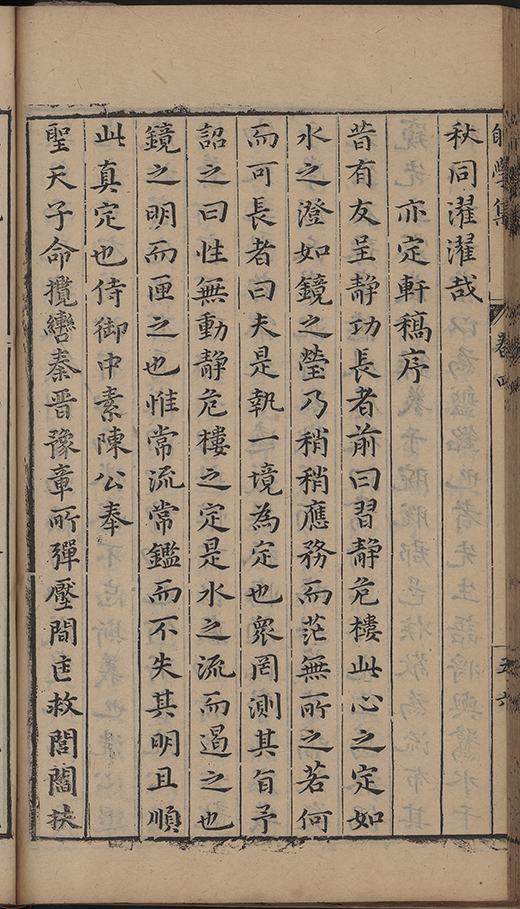 學集 卷四 五六
秋同濯濯哉
亦定軒稿序
昔有友呈靜功長者前曰習靜危樓此心之定如
水之澄如鏡之瑩乃稍稍應務而茫無所之若何
而可長者曰夫是執一境為定也衆罔測其旨予
詔之曰性無動靜危樓之定是水之流而遏之也
鏡之明而匣之也惟常流常鑑而不失其明且順
此真定也侍御中素陳公奉
聖天子命攬轡秦晉豫章所彈壓間匡救閭閻扶